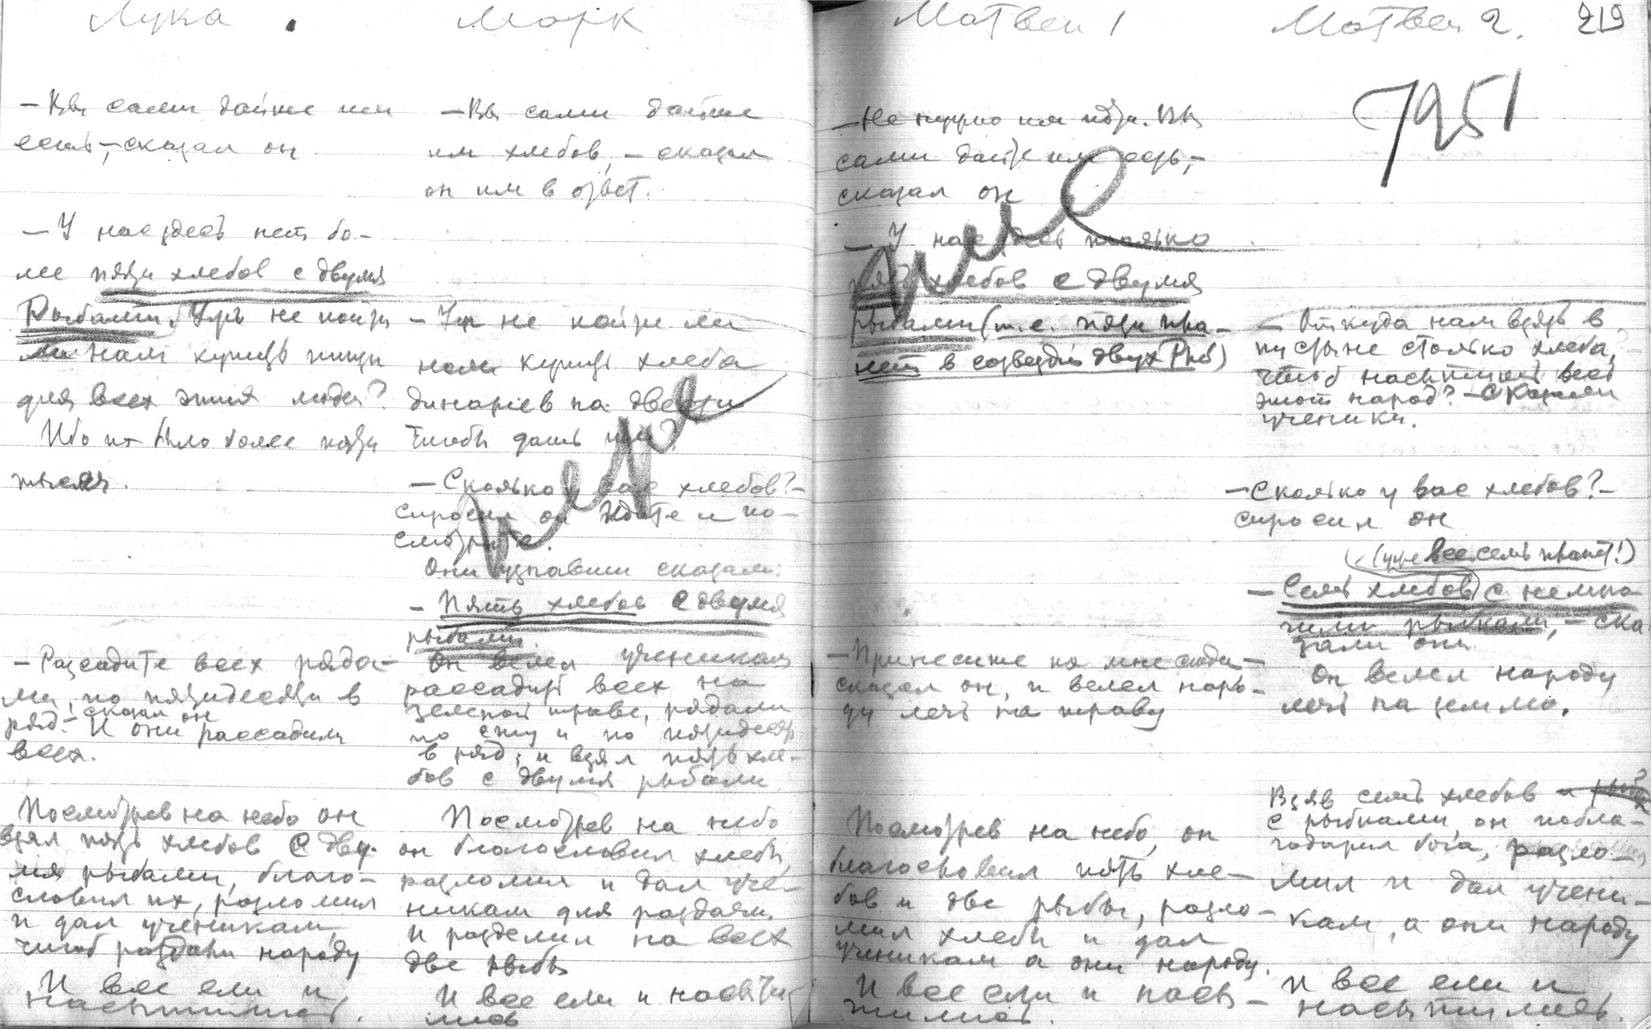 Лука.
— Вы сами дайте им
есть, — сказал он
— У нас здесь нет бо-
лее пяти хлебов с двумя
рыбами. Уж не пойти
ли нам купить пищи
для всех этих людей?
Ибо их было более пяти
тысяч.
— Рассадите всех ряда-
ми, по пятидесяти в
ряд — сказал он
И они рассадили
всех.
Посмотрев на небо он
взял пять хлебов с дву-
мя рыбами, благо-
словил их, разломил
и дал ученикам
чтоб раздали народу
И все ели и
насытились.
Марк
— Вы сами дайте
им хлебов, — сказал
он им в ответ.
— Уж не пойти ли
нам купить хлеба
динариев на двести
чтобы дать им?
— Сколько у вас хлебов? —
спросил он Идите и по-
смотрите.
Они узнавши сказали:
— Пять хлебов с двумя
рыбами.
Он велел ученикам
рассадить всех на
зеленой траве, рядами
по сту и по пятидесяти
в ряд; и взял пять хле-
бов с двумя рыбами.
Посмотрев на небо
он благословил хлебы,
разломил и дал уче-
никам для раздачи
И разделил на всех
две рыбы
И все ели и насыти-
лись
Матвей 1
— Не нужно им идти. Вы
сами дайте им есть, —
сказал он
— У нас здесь только
пять хлебов с двумя
рыбами (т.е. пяти пла-
нет в созвездии двух Рыб)
— Принесите ко мне сюда —
сказал он, и велел наро-
ду лечь на траву
Посмотрев на небо, он
благословил пять хле-
бов и две рыбы, разло-
мил хлебы и дал
ученикам а они народу.
И все ели и насы-
тились.
Матвей 2.
219
7951
— Откуда нам взять в
пустыне столько хлеба,
чтоб насытить весь
этот народ? — Сказали
ученики.
— Сколько у вас хлебов? —
спросил он
(уже все семь планет!)
— Семь хлебов с немно-
гими рыбками, — ска-
зали они.
Он велел народу
лечь на землю.
Взяв семь хлебов и
с рыбками, он побла-
годарил бога, разло-
мил и дал учени-
кам, а они народу
И все ели и
насытились.